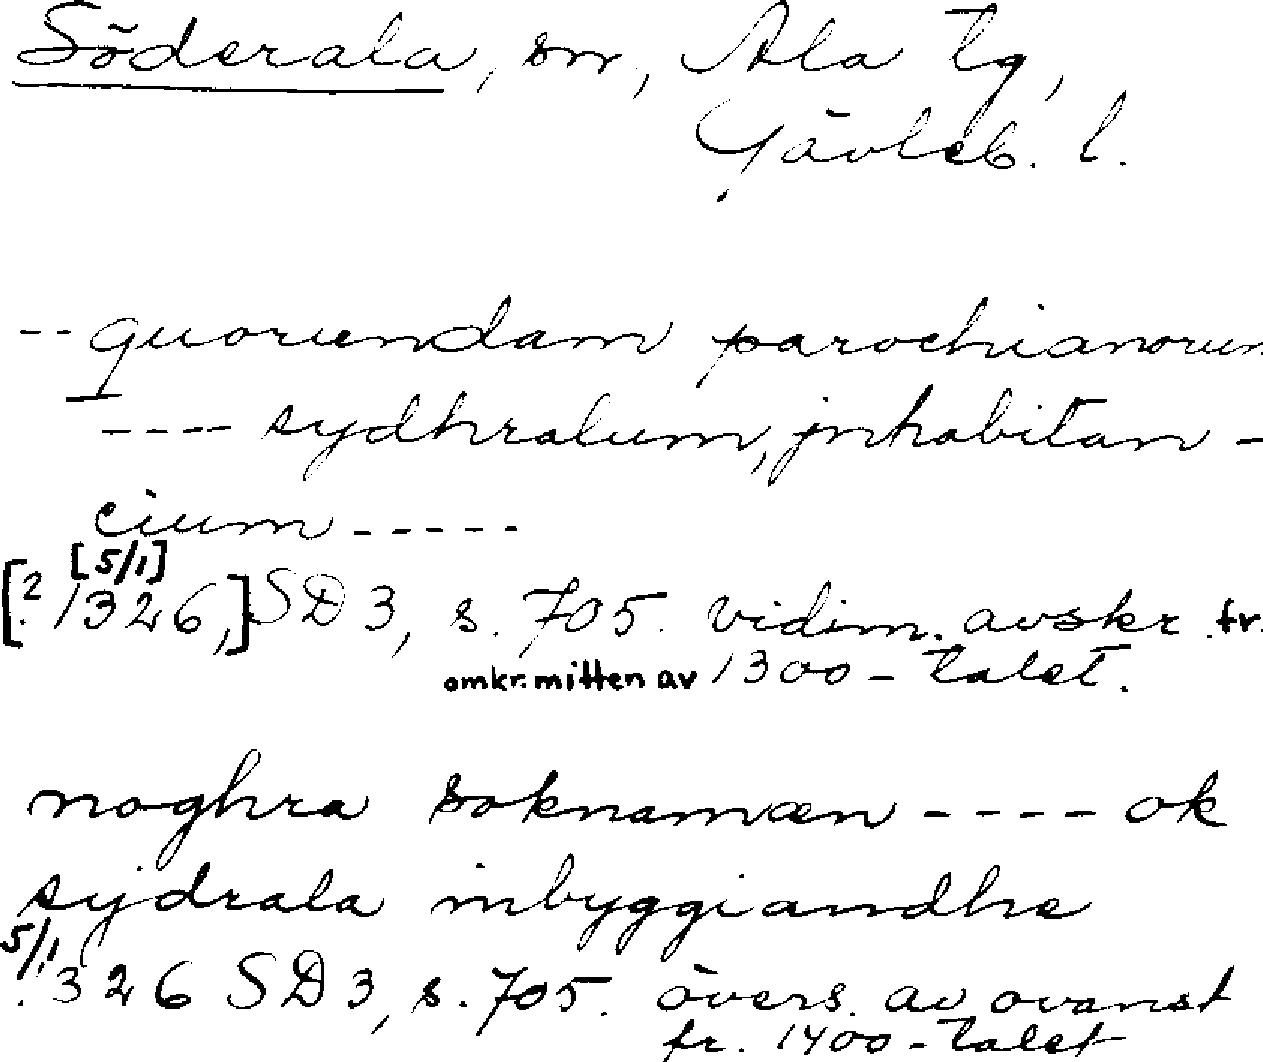 Söderala, sn, Ala tg,
Gävleb. l.
-- quorundam parochianorum
---- sydhralum, jnhabitan-
cium -----
[5/1]
[? 1326,] SD 3, s. 705. vidim. avskr. fr.
omkr. mitten av 1300-talet.
noghra soknamæn ---- ok
sydrala inbyggiandhe
5/1
1326 SD 3, s. 705. övers. av ovanst
fr. 1400-talet